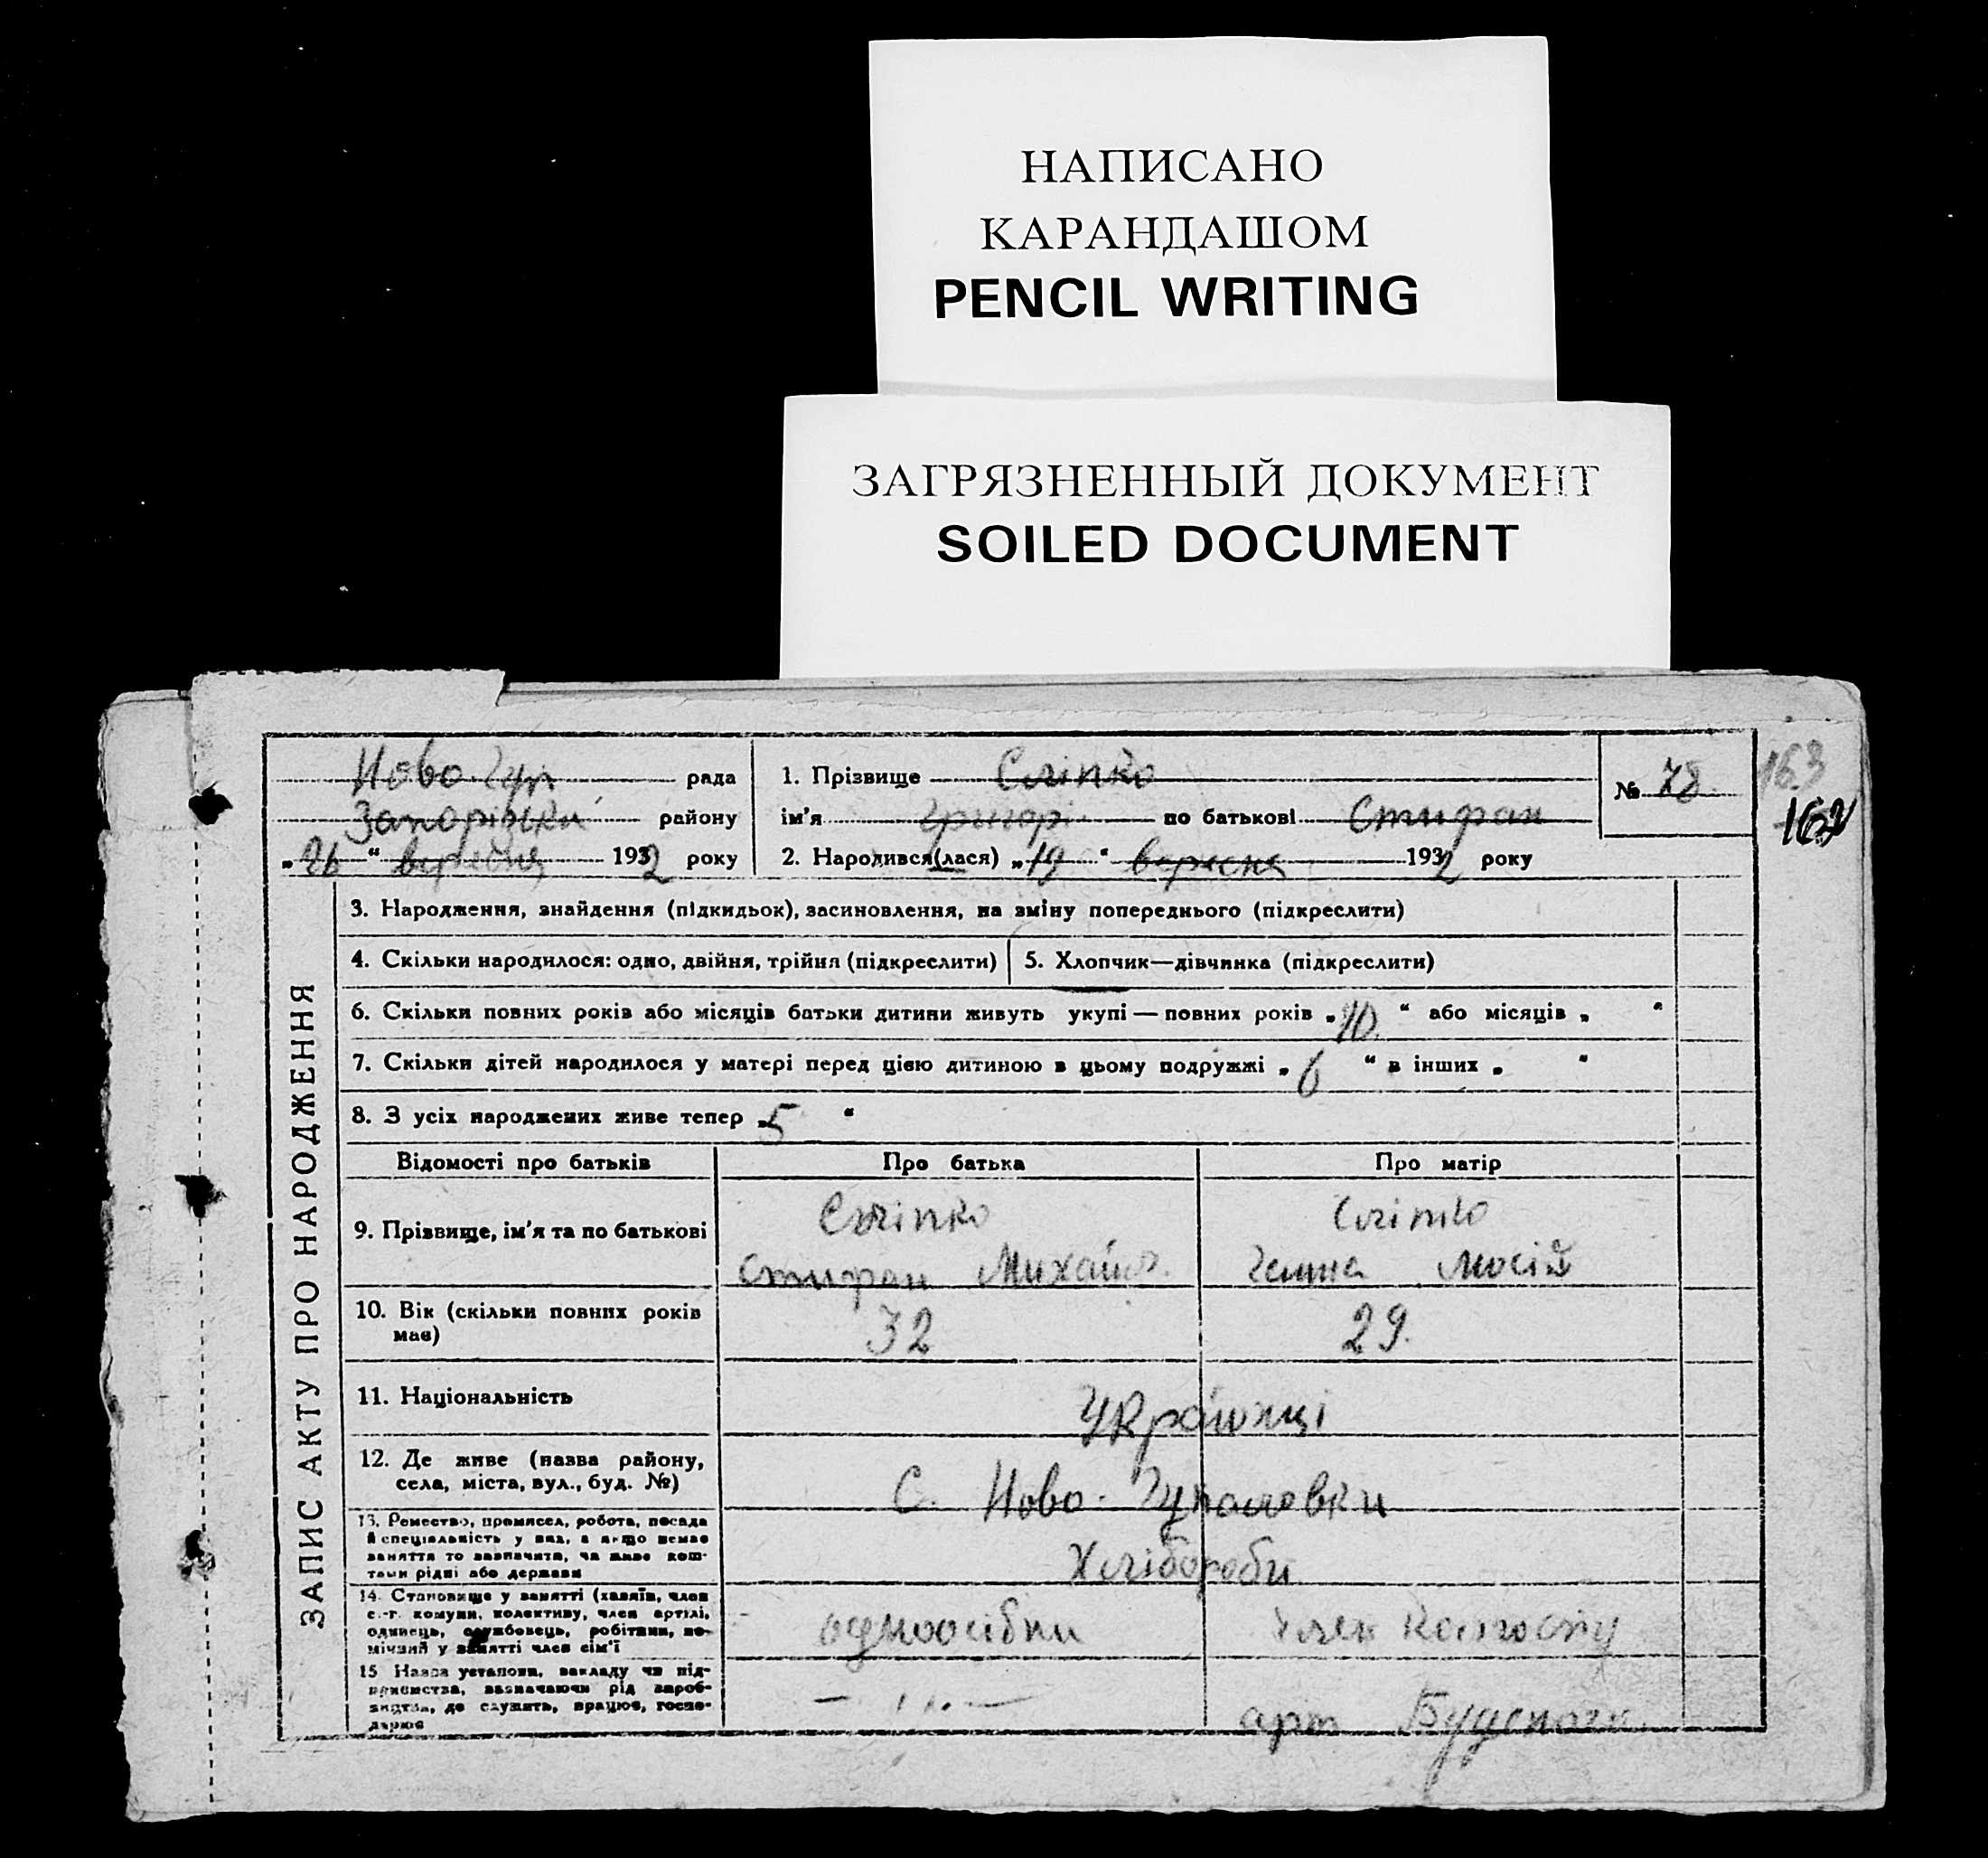 НАПИСАНО
КАРАНДАШОМ
PENCIL WRITING
ЗАГРЯЗНЕННЫЙ ДОКУМЕНТ
SOILED DOCUMENT
Ново-Гуп рада
Запоріжськ району
„26“ вересня 1932 року
1. Прізвище Сліпко
ім'я Григорі по батькові Стифан
2. Народився(лася) „19“ вересня 1932 року
№ 78.
163
162
ЗАПИС АКТУ ПРО НАРОДЖЕННЯ
3. Народження, знайдення (підкидьок), засиновлення, на зміну попереднього (підкреслити)
4. Скільки народилося: одно, двійня, трійня (підкреслити)
5. Хлопчик—дівчинка (підкреслити)
6. Скільки повних років або місяців батьки дитини живуть укупі — повних років „10.“ або місяців „ “
7. Скільки дітей народилося у матері перед цією дитиною в цьому подружжі „6“ в інших „ “
8. З усіх народжених живе тепер „5“
Відомості про батьків Про батька Про матір
9. Прізвище, ім'я та по батькові
Сліпко Сліпко
Стифан Михайл. Мосій
10. Вік (скільки повних років має)
32 29.
11. Національність
Українці
12. Де живе (назва району,
села, міста, вул., буд. №)
С. Ново-Гупаловки
13. Ремество, промисел, робота, посада
й спеціальність у них, а якщо немає
заняття то зазначити, чи живе кош-
тами рідні або держави
Хлібороби
14. Становище у занятті (хазяїн, член
с.-г. комуни, колективу, член артілі,
одинець, службовець, робітник, по-
мічний у занятті член сім'ї
одноосібни член колгоспу
15 Назва установи, закладу чи під-
приємства, зазначаючи рід вироб-
ництва, де служить, працює, госпо-
дарює
— „ — арт Буденого